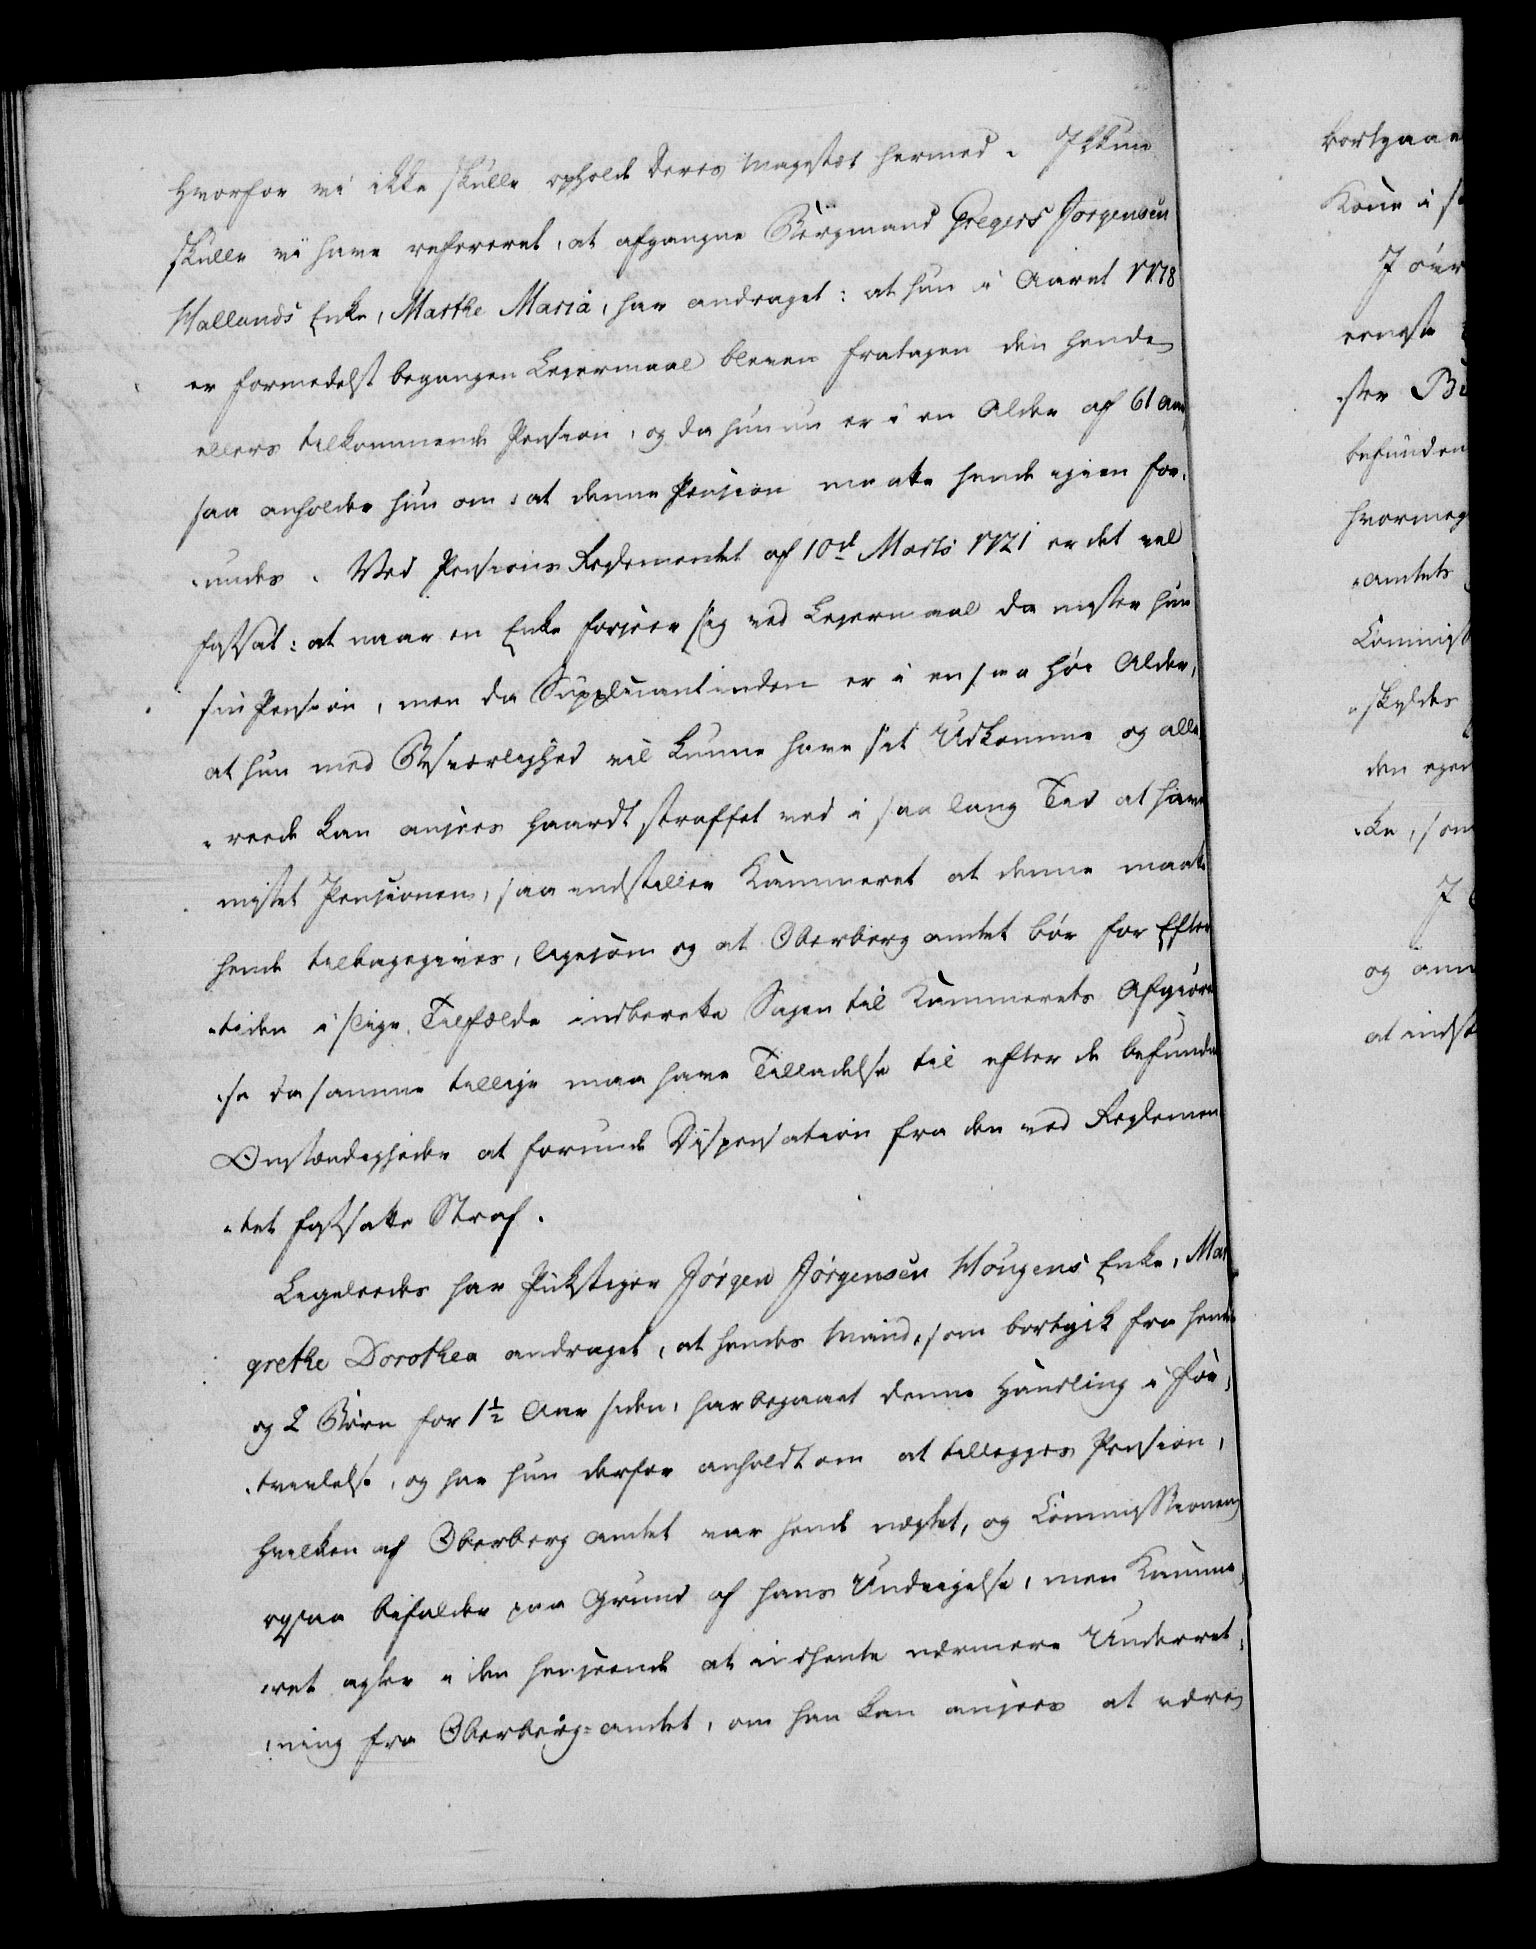 hvorfor vi ikke skulle opholde Deres Majestæt hermed. Ikkun
skulle vi have refereret, at afgangne Bergmand Gregers Jørgensen
Hallands Enke, Marthe Maria, har andraget: at hun i Aaret 1778
er formedelst begangen Leiermaal bleven fratagen den hende
ellers tilkommende Pension, og da hun nu er i en Alder af 61 Aar,
saa anholder hun om, at denne Pension maatte hende igien for-
-undes. Ved Pensions Reglementet af 10de Marts 1721 er det vel
fastsat: at naar en Enke forseer sig ved Leiermaal da mister hun
sin Pension, men da Supplicantinden er i en saa høi Alder,
at hun med Besværlighed vil kunne have sit Udkomme og alle
-reede kan ansees haardt straffet ved i saa lang Tid at have
mistet Pensionen, saa indstiller Kammeret at denne maatte
hende tilbagegives, ligesom og at Oberbergamtet bør for Efter
-tiden i slige Tilfælde indberette Sagen til Kammerets Afgiørel
-se da samme tillige maa have Tilladelse til efter de befundne
Omstændigheder at forunde Dispensation fra den ved Reglemen
-tet fastsatte Straf.
Ligeleedes har Pukstiger Jørgen Jørgensen Hougens Enke, Mar
grethe Dorothea andraget, at hendes Mand, som bortgik fra hende
og 2 Børn for 1½ Aar siden, har begaaet denne Handling i For-
-tvivlelse, og har hun derfor anholdt om at tillægges Pension,
hvilken af Oberbergamtet var hende nægtet, og Commissionen
ogsaa bifalder paa Grund af hans Undvigelse, men Kamme-
-ret agter i den henseende at indhente nærmere Underret-
-ning fra Oberberg-amtet, om han kan ansees at være
bortgaae
Kone i s
I øvr
ster
befunden
hvormeg
-amtets
Commiss
-skyldes
den egen
-ke, som
og ann
at indst